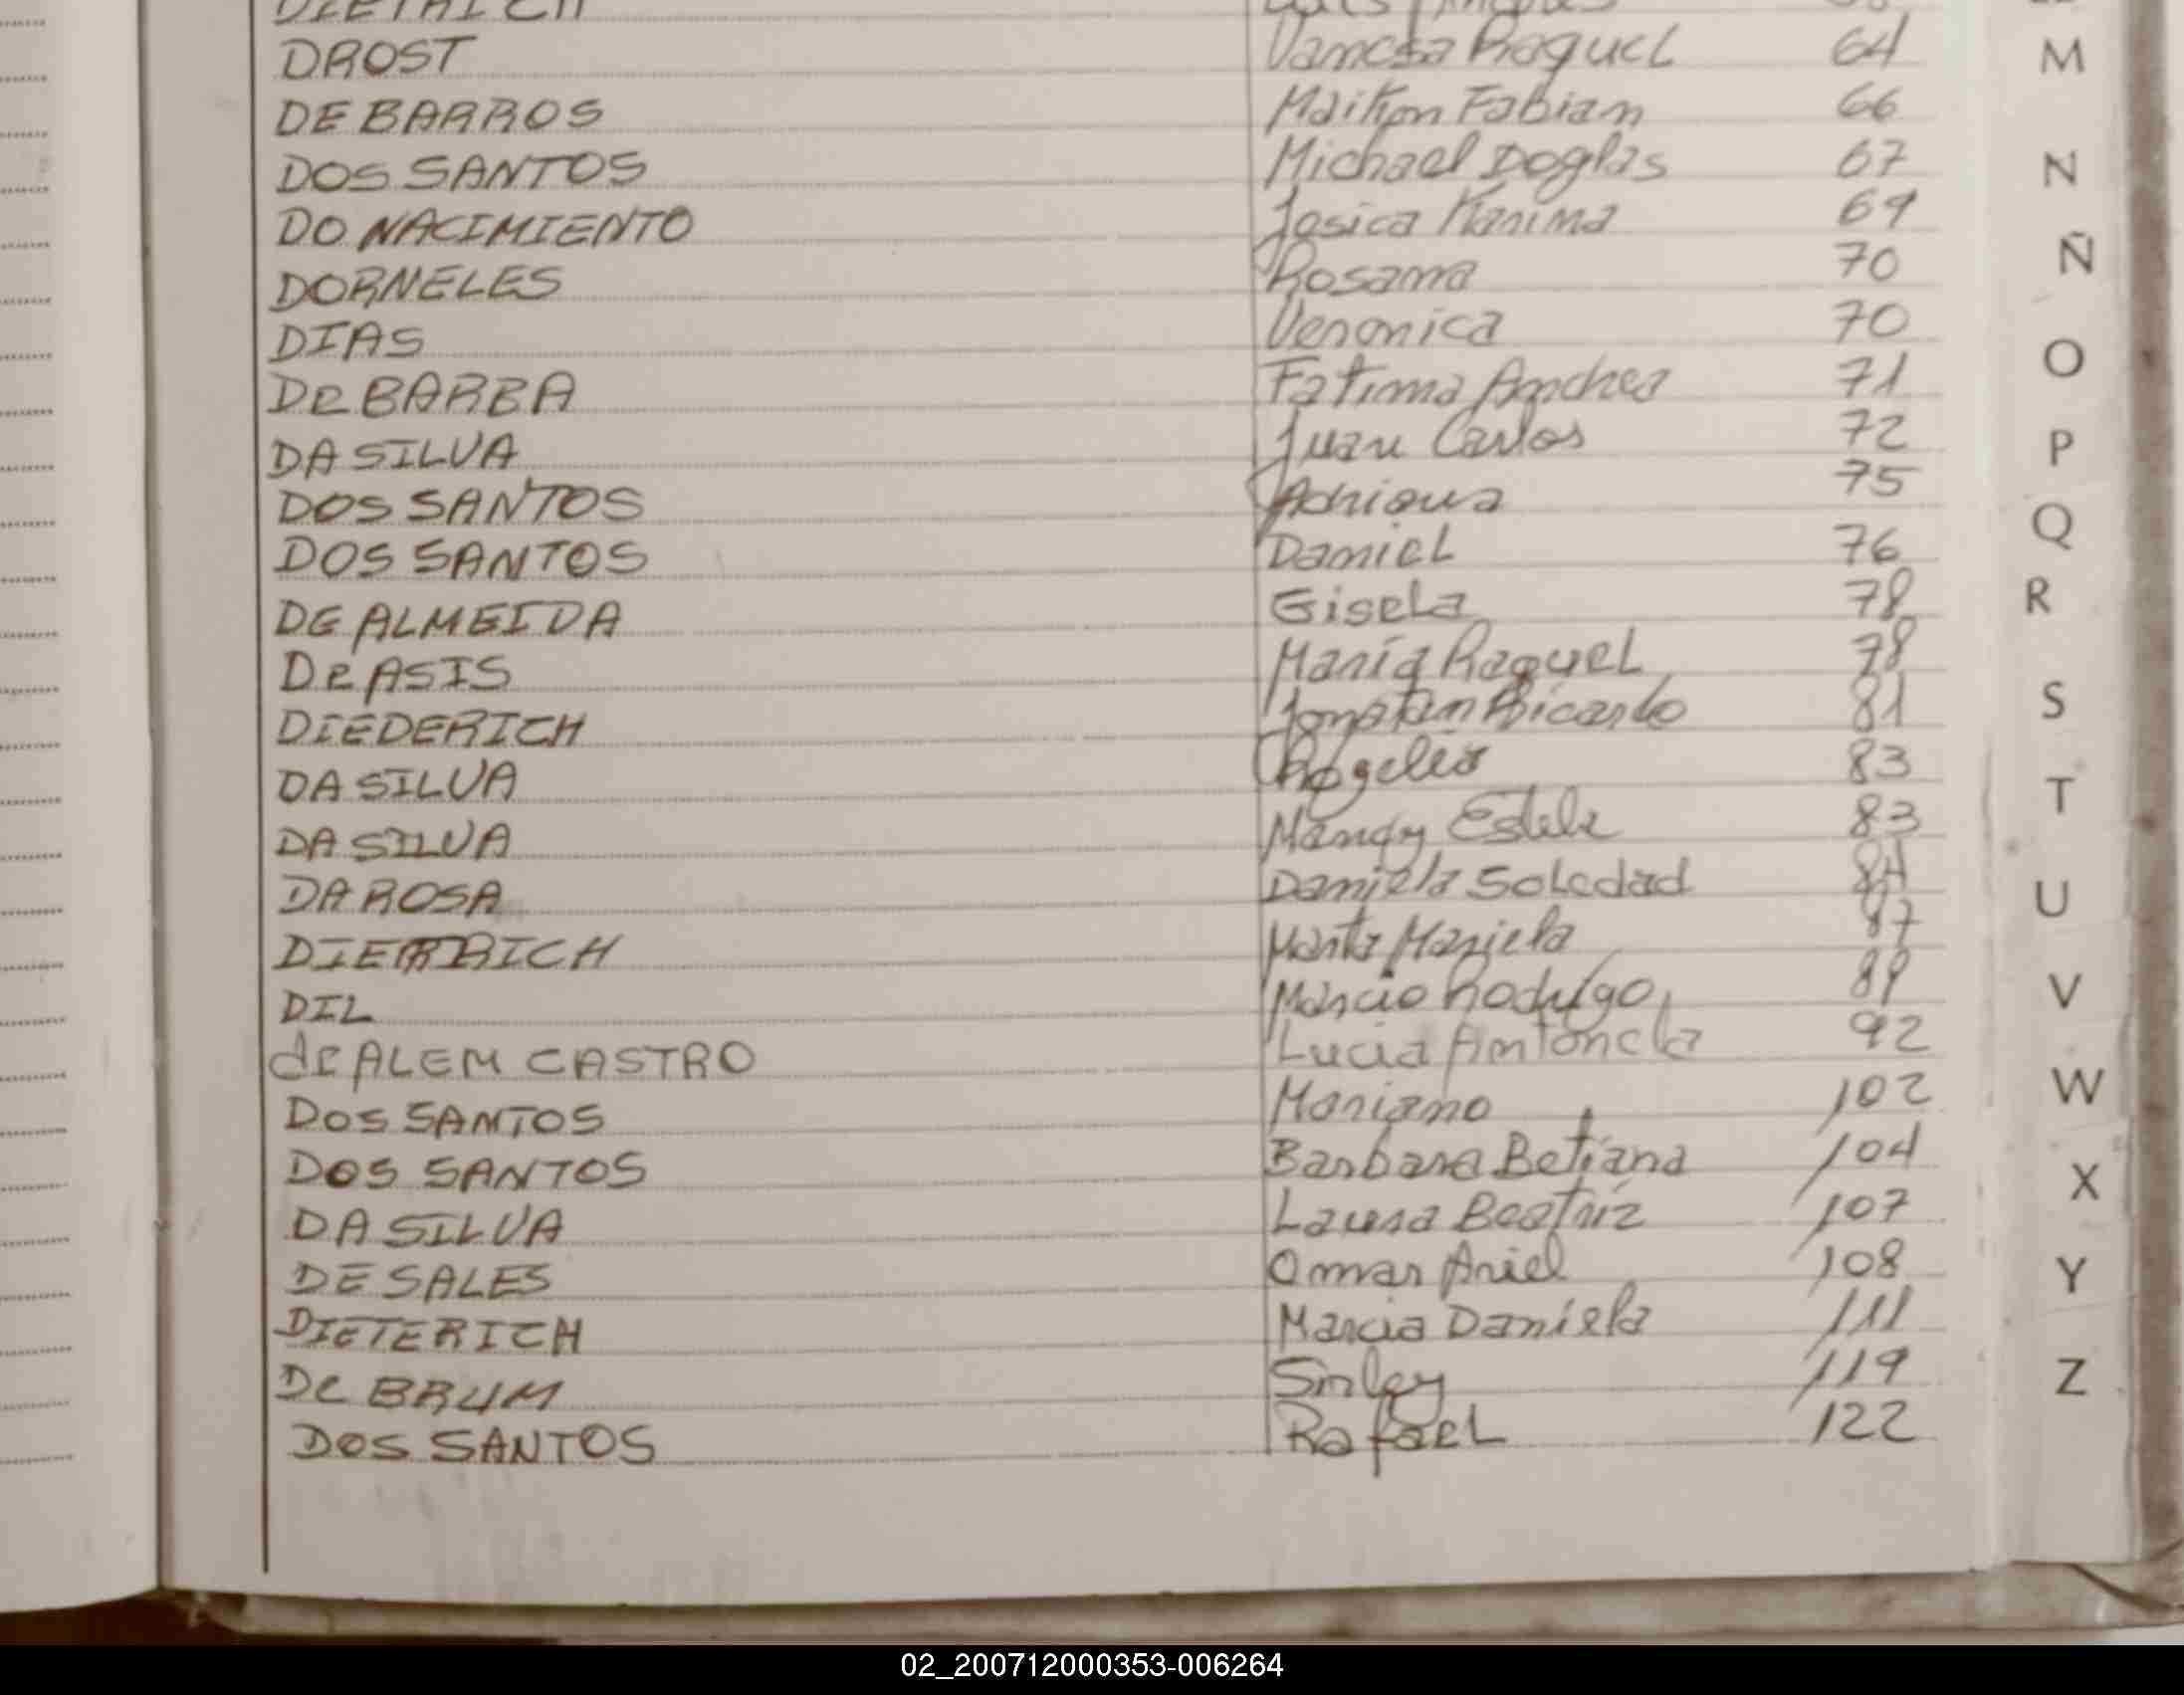 DIETRICH
DROST Vanesa Raquel 64
DE BARROS Maikon Fabian 66
DOS SANTOS Michael Doglas 67
DO NACIMIENTO Josica Karina 69
DORNELES Rosana 70
DIAS Veronica 70
De BARBA Fatima Andrea 71
DA SILVA Juan Carlos 72
DOS SANTOS Adriana 75
DOS SANTOS Daniel 76
DE ALMEIDA Gisela 78
De ASIS María Raquel 78
DIEDERICH Jonatan Ricardo 81
DA SILVA Rogelio 83
DA SILVA Nancy Estela 83
DA ROSA Daniela Soledad 84
DIETRICH Marta Mariela 87
DIL Marcio Rodrigo 89
de ALEM CASTRO Lucia Antonela 92
DOS SANTOS Mariano 102
DOS SANTOS Barbara Betiana 104
DA SILVA Laura Beatriz 107
DE SALES Omar Ariel 108
DIETERICH Marcia Daniela 111
De BRUM Sirley 119
DOS SANTOS Rafael 122
M
N
Ñ
O
P
Q
R
S
T
U
V
W
X
Y
Z
02_200712000353-006264